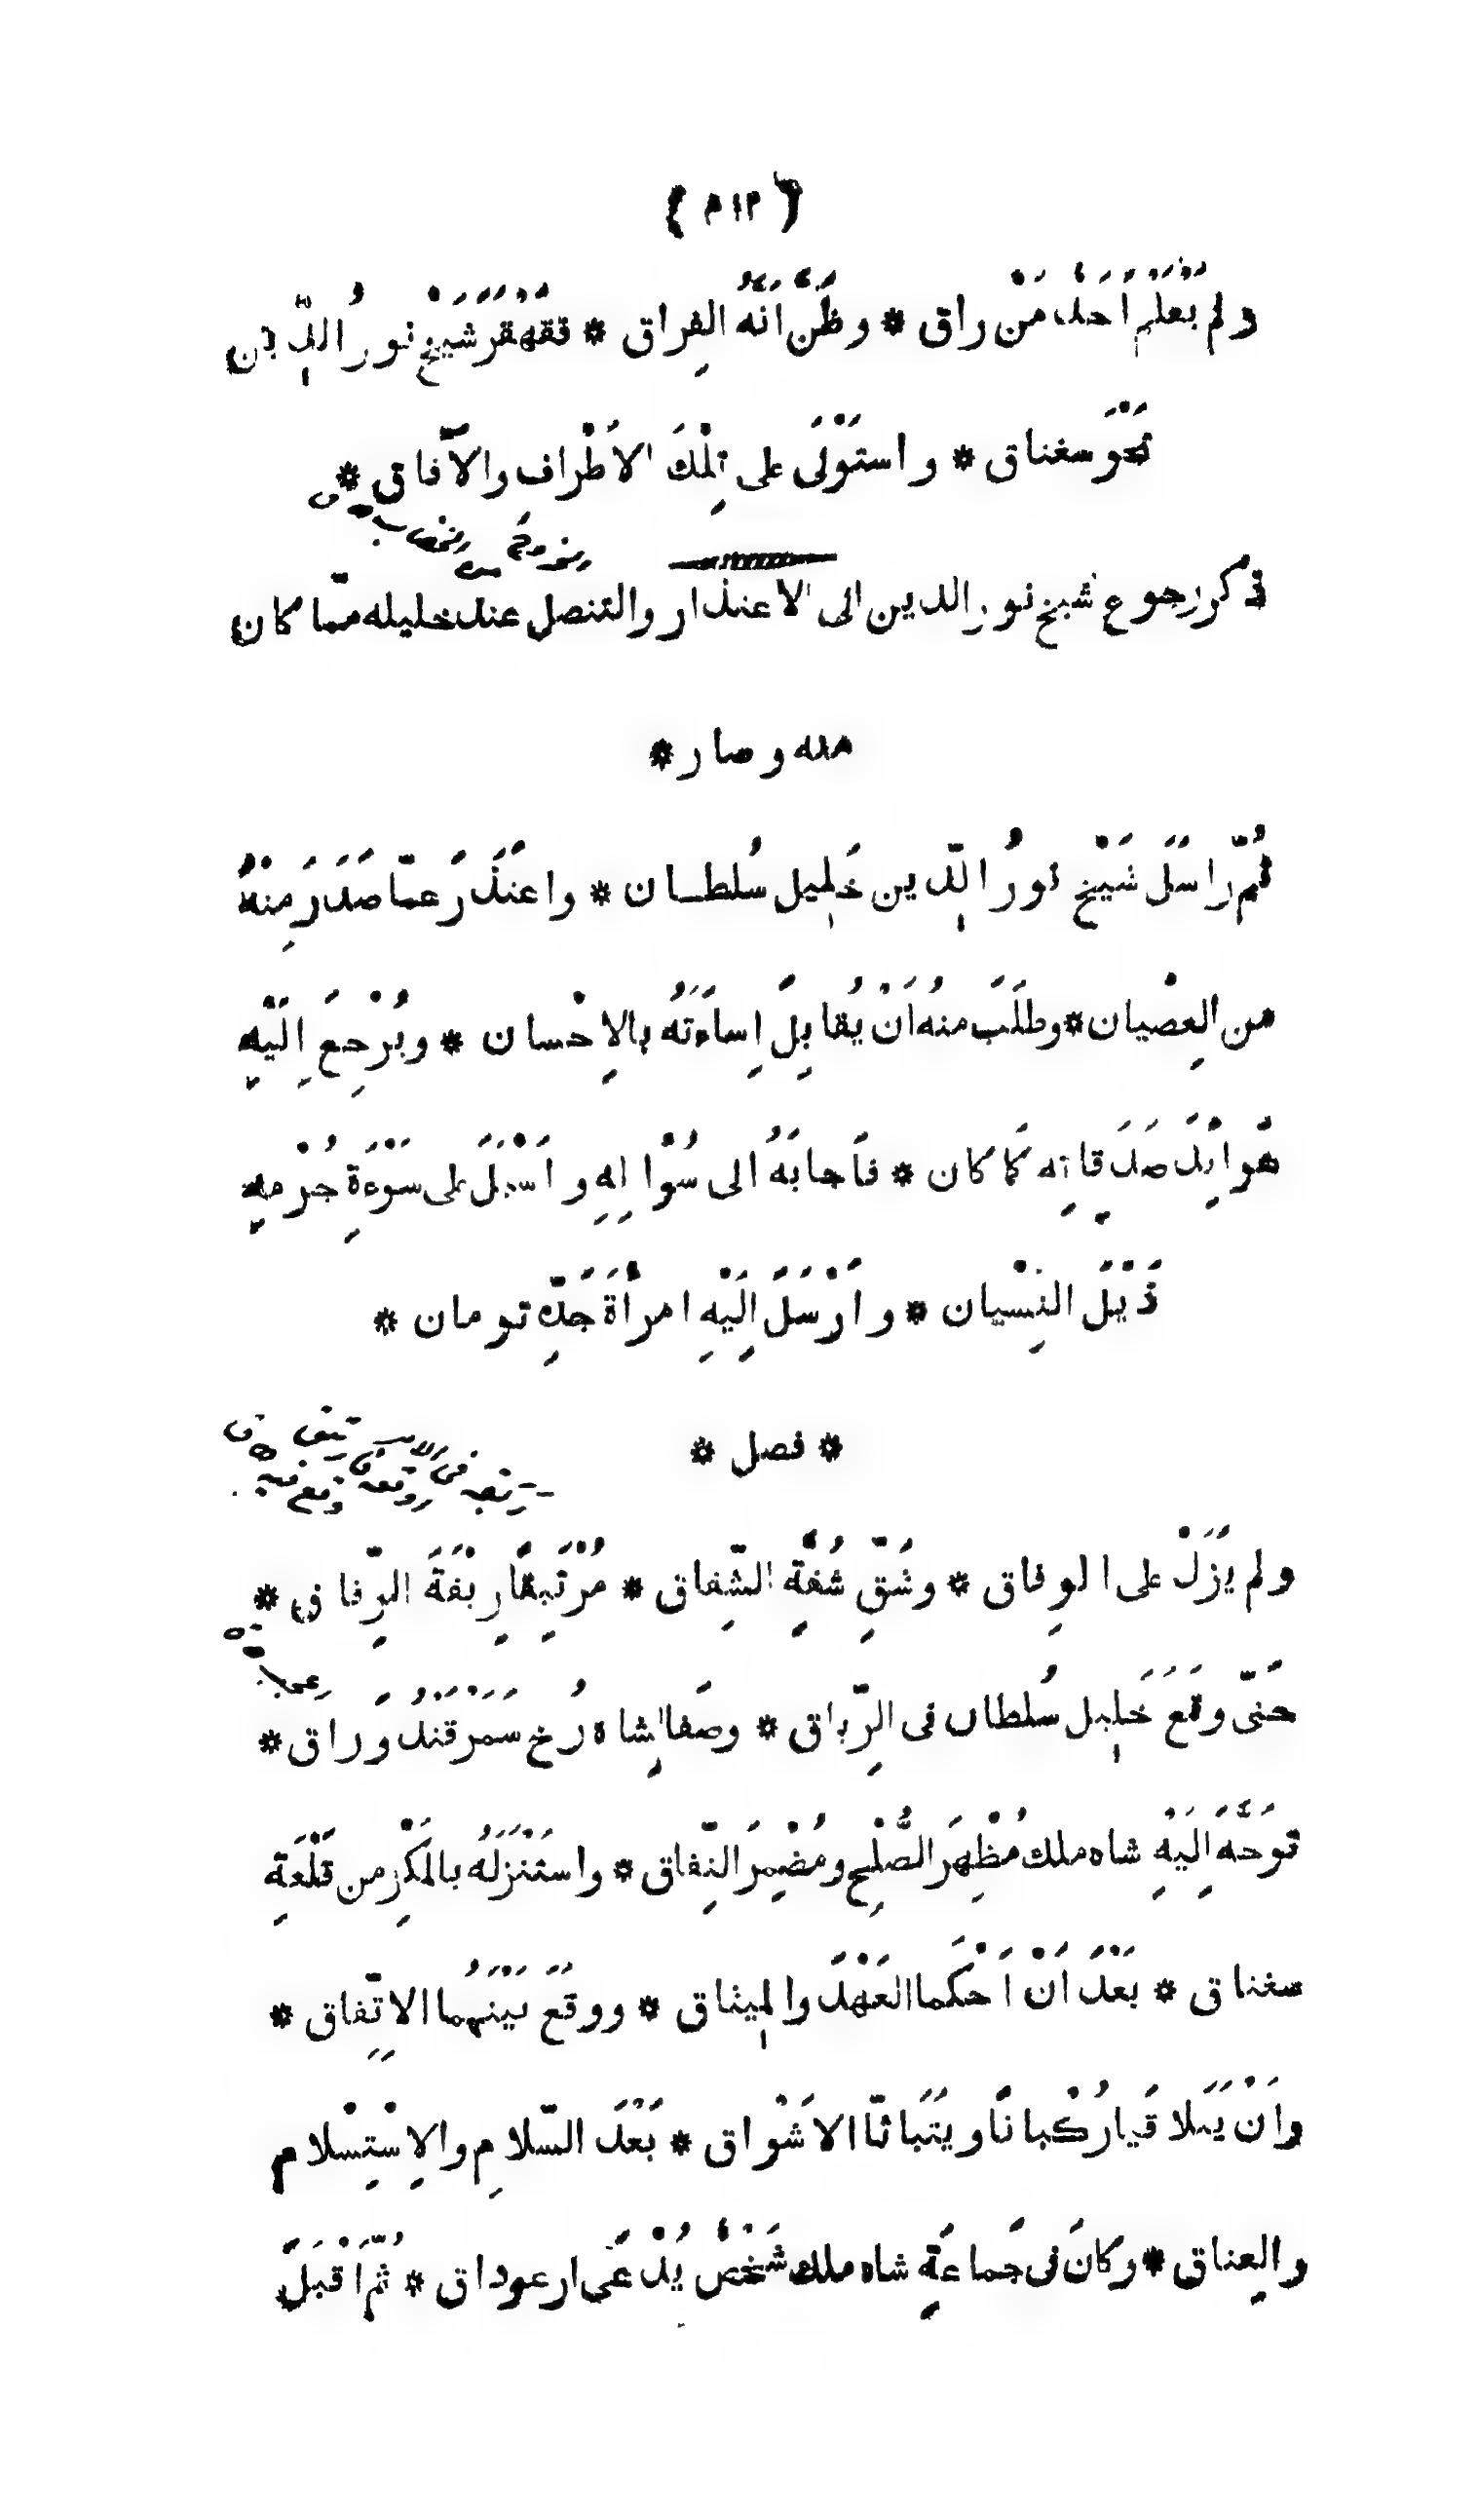 ( ٤١٢ )
ولم يَعْلَمْ أَحَدٌ مَنْ راق * وظَنَّ أَنَّهُ الفِراق * فقَهْقَرَ شَيْخ نُورُ الدِّين
نَحْوَ سغناق * واستَوْلَى على تِلْكَ الاَطْراف والآفاق *
ذكر رجوع شيخ نور الدين الى الاعتذار والتنصل عند خليله ممّا كان
منه وصار *
ثُمَّ راسَلَ شَيْخ نُورُ الدِّين خَلِيل سُلطـان * واعتَذَرَ عمّا صَدَرَ مِنْهُ
من العِصْيان * وطلَبَ منه أَنْ يُقابِلَ إِساءَتَهُ بالاِحْسان * ويُرْجِعَ إِلَيْهِ
عَوائِدَ صَدَقاتِه كَما كان * فأَجابَهُ الى سُؤالِهِ وأَسْبَلَ على سَوْءَةِ جُرْمِهِ
ذَيْلَ النِسْيان * وأَرْسَلَ إِلَيْهِ امرأَةَ جَدِّه تومان *
* فصل *
ولم يَزَلْ على الوِفاق * وشَقِّ شُقَّةِ الشِّقاق * مُرْتَبِقًا رِبْقَةَ الرِّفاق *
حَتّى وقَعَ خَلِيل سُلطان فى الرِّباق * وصَفا لِشاه رُخ سَمَرْقَنْدُ وَراق *
توَجَّهَ إِلَيْهِ شاه ملك مُظْهِرَ الصُّلْحِ ومُضْمِرَ النِّفاق * واستَنْزَلَهُ بالمَكْرِ من قَلْعَةِ
سغناق * بَعْدَ أَنْ أَحْكَما العَهْدَ والمِيثاق * ووقَعَ بَيْنَهُما الاِتِّفاق *
وأَنْ يَتَلاقَيا رُكْبانًا ويَتَباثّا الاَشْواق * بَعْدَ السَّلامِ والاِسْتِسْلام
والعِناق * وكانَ فى جَماعَةِ شاه ملك شَخْصٌ يُدْعَى ارعوداق * ثُمَّ أَقْبَلَ